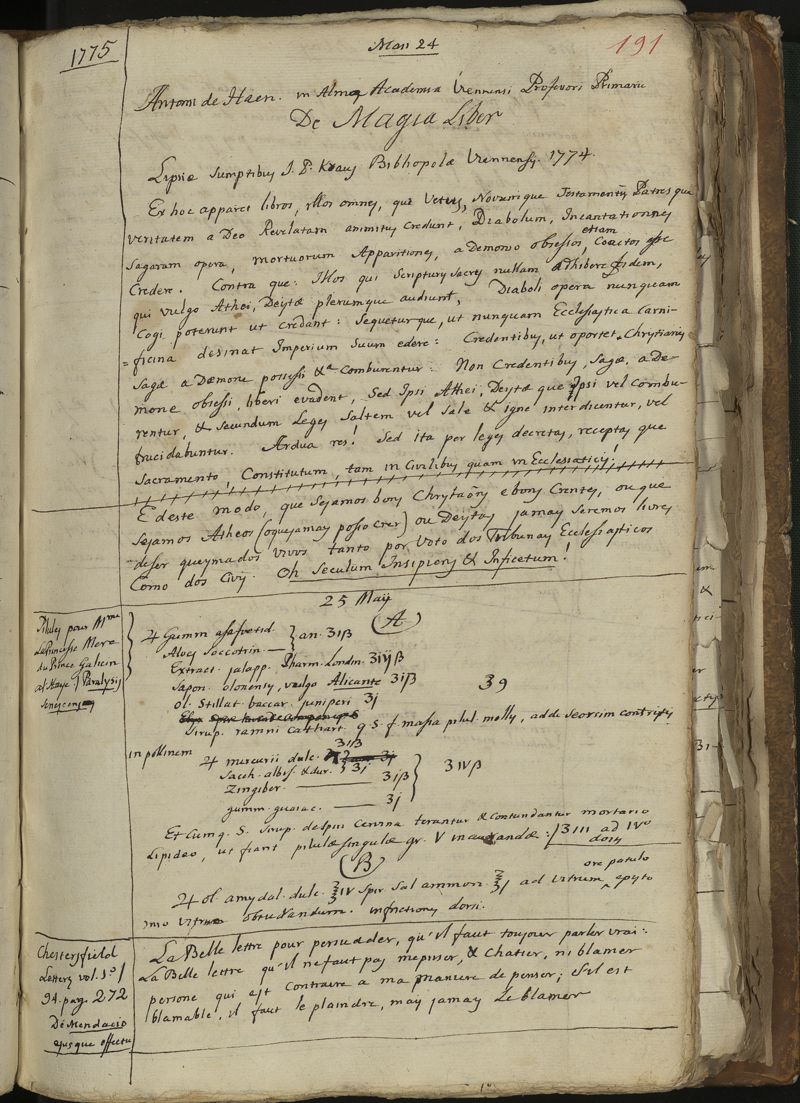 1775
Maii 24
191
Antonii de Haen. in Alma Academia Viennensi Professori Primarii
De Magia Liber
Lipsiæ Sumptibus J. P. Kraus Bibliopolæ Viennensis. 1774.
Ex hoc apparet libros, illos omnes, qui Veteris, Novumque Testamentum Patres que
veritatem a Deo Revelatam animitus Credunt, Diabolum, Incantationes
Sagarum opera, mortuorum Apparitiones, a Demonio obsessos, etiam Coactos esse
Credere. Contra que: Illos qui Scripturis sacris nullam adhibere fidem,
qui vulgo Athei, Deistæ plerumque audiunt, Diaboli opera nunquam
Cogi poterunt ut credant: Sequeturque, ut nunquam Ecclesiastica Carni-
=ficina desinat Imperium Suum edere: Credentibus, ut oportet Christianis
Sagæ a Demone possessi &a Comburentur: Non Credentibus, Sagæ, a De-
mone obsessi, liberi evadent, Sed Ipsi Athei, Deistæ que Ipsi vel Combu-
rentur, & secundum Leges Saltem vel Sale & igne interdicentur, vel
trucidabuntur. Ardua res! Sed ita per leges decretas, receptas que
Sacramento, Constitutum, tam in Civilibus quam in Ecclesiasticis!
E deste modo, que Sejamos bons Chrystaõs e bons Crentes, ou que
Sejamos Atheos (o que jamas posso crer) ou Deistas jamay Seremos livres
=de ser queymados vivos tanto por voto dos Tribunais Ecclesiasticos
Como dos Civis. Oh Seculum Insipiens & Inficetum!
25 Maij
Pilules pour Mme
La Princesse Mere
du Prince Galicin
a la Haye. Paralysis
(A)
♃ Gumm assafoetid.
Aloes Soccotrin. } an. ʒiβ
Extract. jalapp. Pharm. Londin. ʒiijβ
Sapon. blonensis, vulgo Alicante ʒiβ
ol. Stillat. baccar. juniperi ʒj
39
Sirup. ramni Cathart. q S. f. massa pilul. mollis, adde Seorsim contritis
in pollinem
♃ mercurii dulc. ʒiβ
Sacch. albis. & dur. ʒj
Zingiber. ʒiβ
gumm. guaiac. ʒj
ʒivβ
Et Cum q. S. Sirup. de spin Cervina terantur & Contundantur mortario
lipideo, ut fiant pilulæ singulæ gr. V inaurandæ: ʒiii ad ivo
dosis
(B)
♃ ol. amydal. dulc. ℥iv Spir Sal ammon. ℥j ad vitrum ore patulo
vitreo obturandum. infrictiones dorsi.
Chestersfield
Letters vol. 1º
94. pag. 272
De Mendacio
ejusque effectu
La Belle lettre pour persuader, qu'il faut toujour parler vrai:
La Belle lettre qu'il ne faut pas mepriser, & Chatier, ni blamer
persone qui est Contraire a ma maniere de penser; s'il est
blamable, il faut le plaindre, mais jamay Le blamer